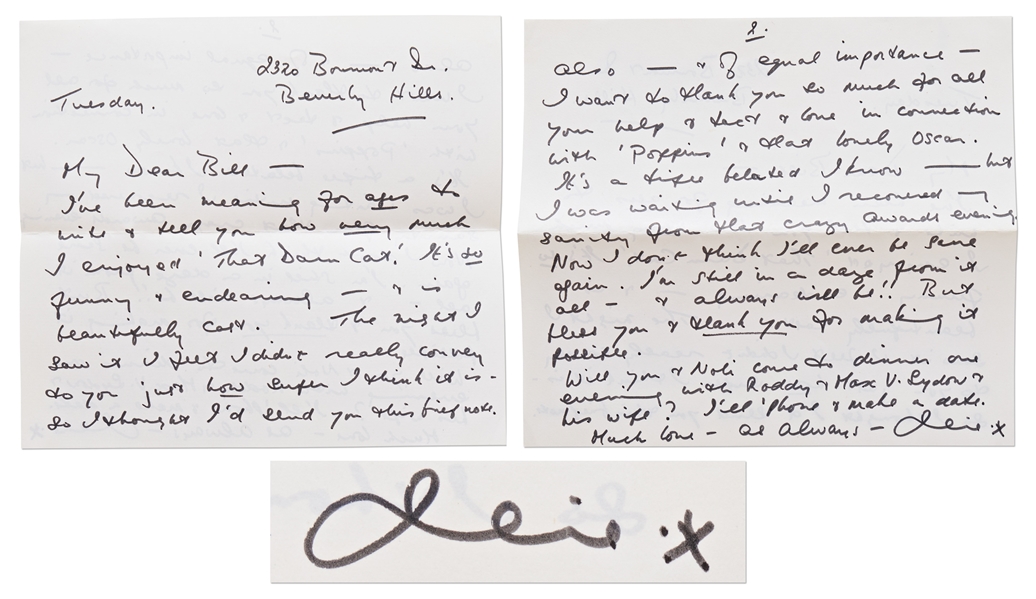 2320 Bowmont Dr.
Beverly Hills.
Tuesday.
My Dear Bill —
I've been meaning for ages to
write & tell you how very much
I enjoyed 'That Darn Cat.' It's so
funny & endearing — & is
beautifully cast. The night I
saw it I felt I didn't really convey
to you just how super I think it is -
so I thought I'd send you this brief note.
2.
also — & of equal importance —
I want to thank you so much for all
your help & tact & love in connection
with 'Poppins' & that lovely Oscar.
It's a trifle belated I know — but
I was waiting until I recovered —
sanity from that crazy Awards evening.
Now I don't think I'll ever be sane
again. I'm still in a daze from it
all — & always will be!! But
bless you & thank you for making it
possible.
Will you & Nolie come to dinner one
evening with Roddy & Max V. Sydow &
his wife? I'll 'phone & make a date.
Much love — as always —